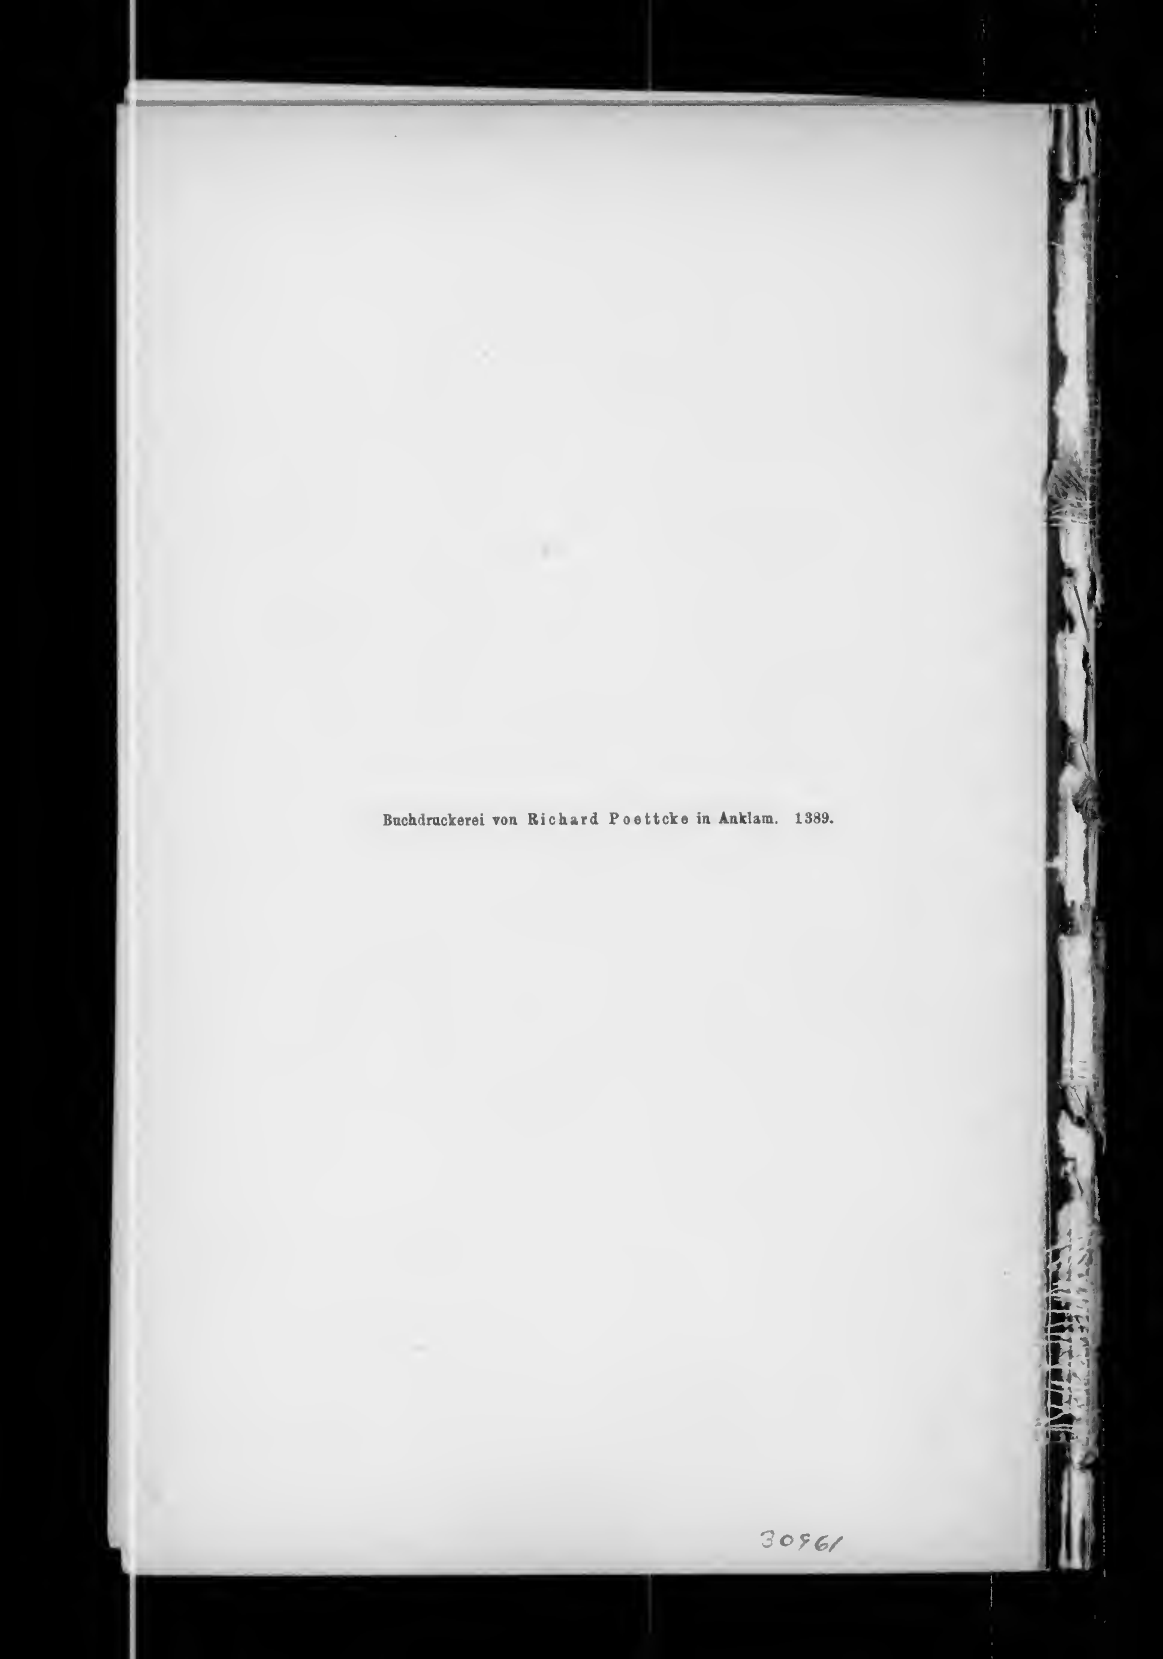 Buchdruckerei von Richard Poettcke in Anklam. 1889.
30961